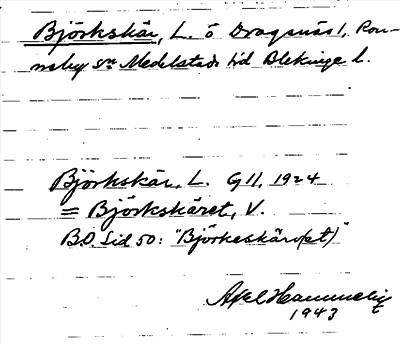 Björkskär, L. ö Dragsnäs 1, Ron-
neby sn Medelstads hd Blekinge l.
Björkskär, L. G 11, 1924
= Björkskäret, V.
B.O. Sid 50: "Björkeskär(et)"
Axel Hammelig
1943